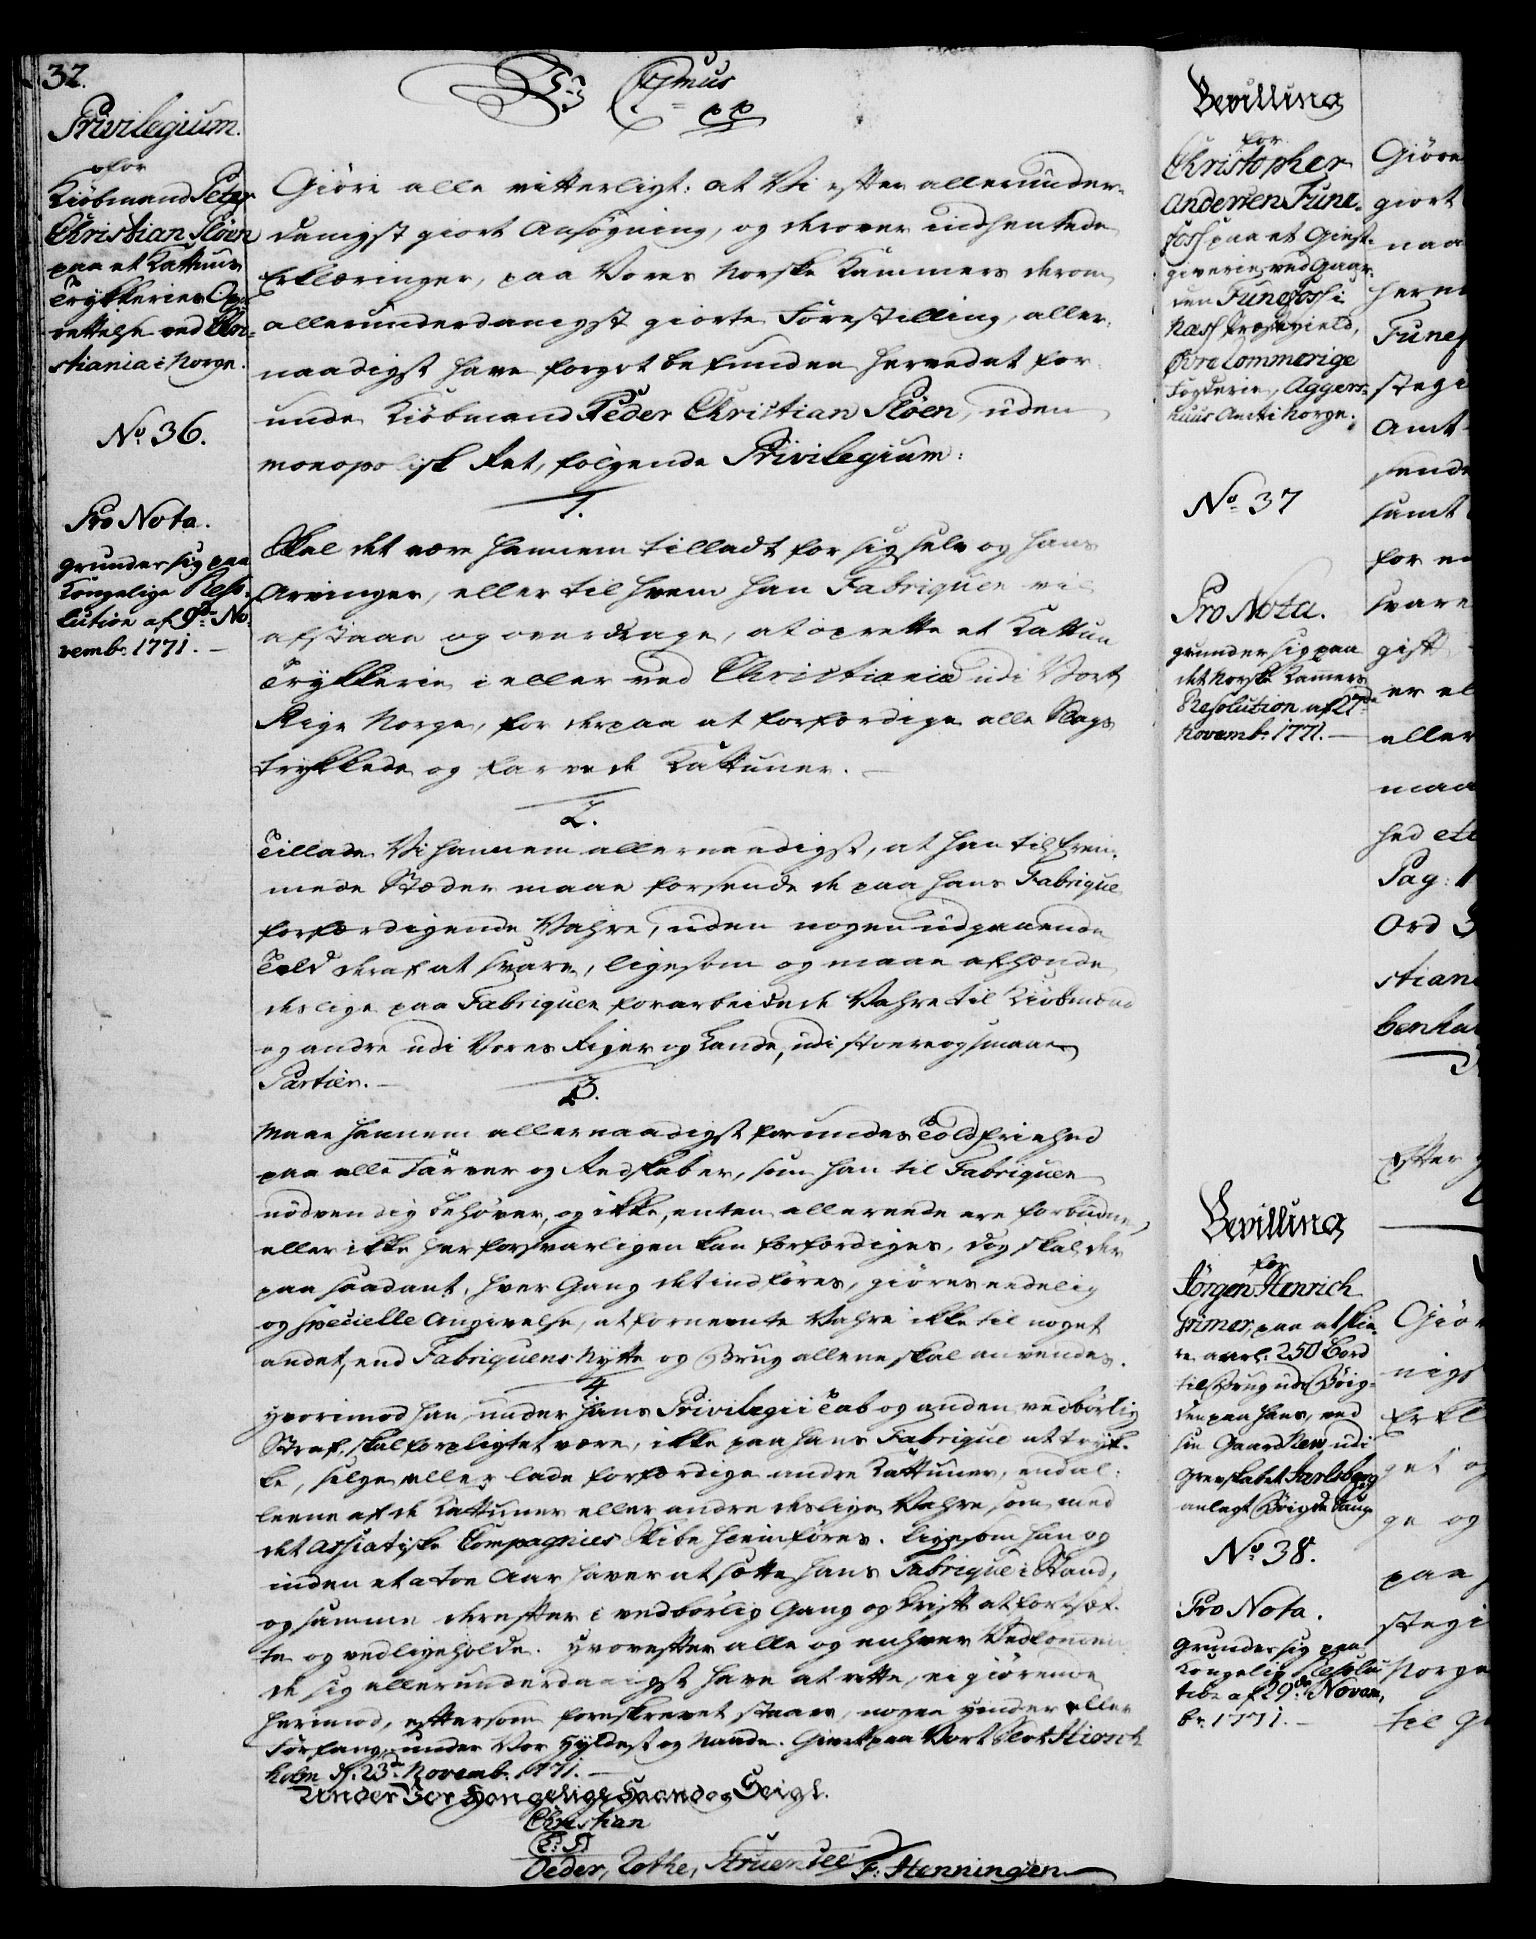 32.
Privilegium.
for
Kiöbmand Peter
Christian Ploen
paa et Kattun
Trykkeries Op-
rettelse ved Chri-
stiania i Norge.
No. 36.
Pro Nota.
grunder sig paa
Kongelige Reso-
lution af 9de No-
vembr. 1771. —
Vi C 7mus
pp
Giöre alle vitterligt: at Vi efter allerunder-
danigst giort Ansøgning, og derover indhentede
Erklæringer, paa Vores Norske Kammers derom
allerunderdanigst giorte Forestilling, aller-
naadigst have forgot befunden herved at for-
unde Kiöbmand Peder Christian Ploen, uden
monopolisk Ret, følgende Privilegium:
1.
Skal det være hannem tilladt for sig selv og hans
Arvinger, eller til hvem han Fabriquen vil
afstaae og overdrage, at oprette et Kattun
Trykkerie i eller ved Christiania udi Vort
Rige Norge, for derpaa at forfærdige alle Slags
trykkede og farvede Kattuner. —
2.
Tillade Vi hannem allernaadigst, at han til frem-
mede Stæder maae forsende de paa hans Fabrique
forfærdigende Vahre, uden nogen udgaaende
Told deraf at svare, ligesom og maae afhænde
deslige paa Fabriquen forarbeidede Vahre til Kiöbmænd
og andre udi Vores Riger og Lande, udi store og smaae
Partier. —
3.
Maae hannem allernaadigst forundes Toldfriehed
paa alle Farver og Redskaber, som han til Fabriquen
nödvendig behøver, og ikke, enten allereede ere forbudne,
eller ikke her forsvarligen kan forfærdiges, dog skal der
paa saadant, hver Gang det indføres, giøres eedelig
og specielle Angivelse, at fornevnte Vahre ikke til noget
andet, end Fabriquens Nytte og Brug allene skal anvendes.
4
Hvorimod han, under hans Privilegii Tab og anden vedbørlig
Straf, skal forpligtet være, ikke paa hans Fabrique at tryk-
ke, selge eller lade forfærdige andre Kattuner, end al-
leene af de Kattuner eller andre deslige Vahre, som med
det Assiatiske Compagnies Skibe hiemføres. ligesom han og
inden et a toe Aar haver at sætte hans Fabrique i Stand,
og samme derefter i vedbørlig Gang og Drift at fortsæt-
te og vedligeholde. Hvorefter alle og enhver Vedkommen-
de sig allerunderdanigst have at rette, ei giørende
herimod, eftersom foreskrevet staaer, nogen Hinder eller
Forfang, under Vor Hyldest og Naade. Givet paa Vort Slot Hirsch-
holm d. 23de Novembr. 1771. —
Under Vor Kongelige Haand og Seigl.
Christian
(L: S)
Oeder, Rothe, Struensee F. Henningsen
Bevilling
for
Christopher
Andersen Fune-
foss paa et Giest-
giverie ved Gaar-
den Funefoss i
Næss Præstegield,
Øvre Rommerige
Fogderie, Aggers-
huus Amt i Norge.
No. 37
Pro Nota.
grunder sig paa
det Norske Kamers
Resolution af 27de
Novembr. 1771. —
Bevilling
for
Jörgen Henrich
paa at skiæ-
re aarl. 250 Bord
til Brug ud
den paa hans, ved
sin Gaard udi
Grevskabet Jarlsberg
anlegt
No. 38.
Pro Nota.
Grunder sig paa
Kongelig Resolu-
tion af 29de Novem-
br. 1771. —
Giøre
giort
naa
herm
Funef
stegi
Amt
sende
samt
for en
svare
gift
er el
eller
maa
hed ete
Pag: 1
Ord 3
stian
benha
Efter
Giør
nigs
Erkl
get og
ge og
paa
stegi
Norge
til G